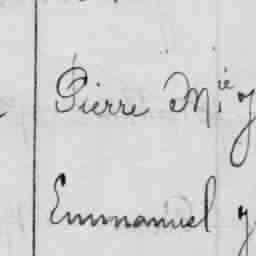 Pierre M.ie
Emmanuel